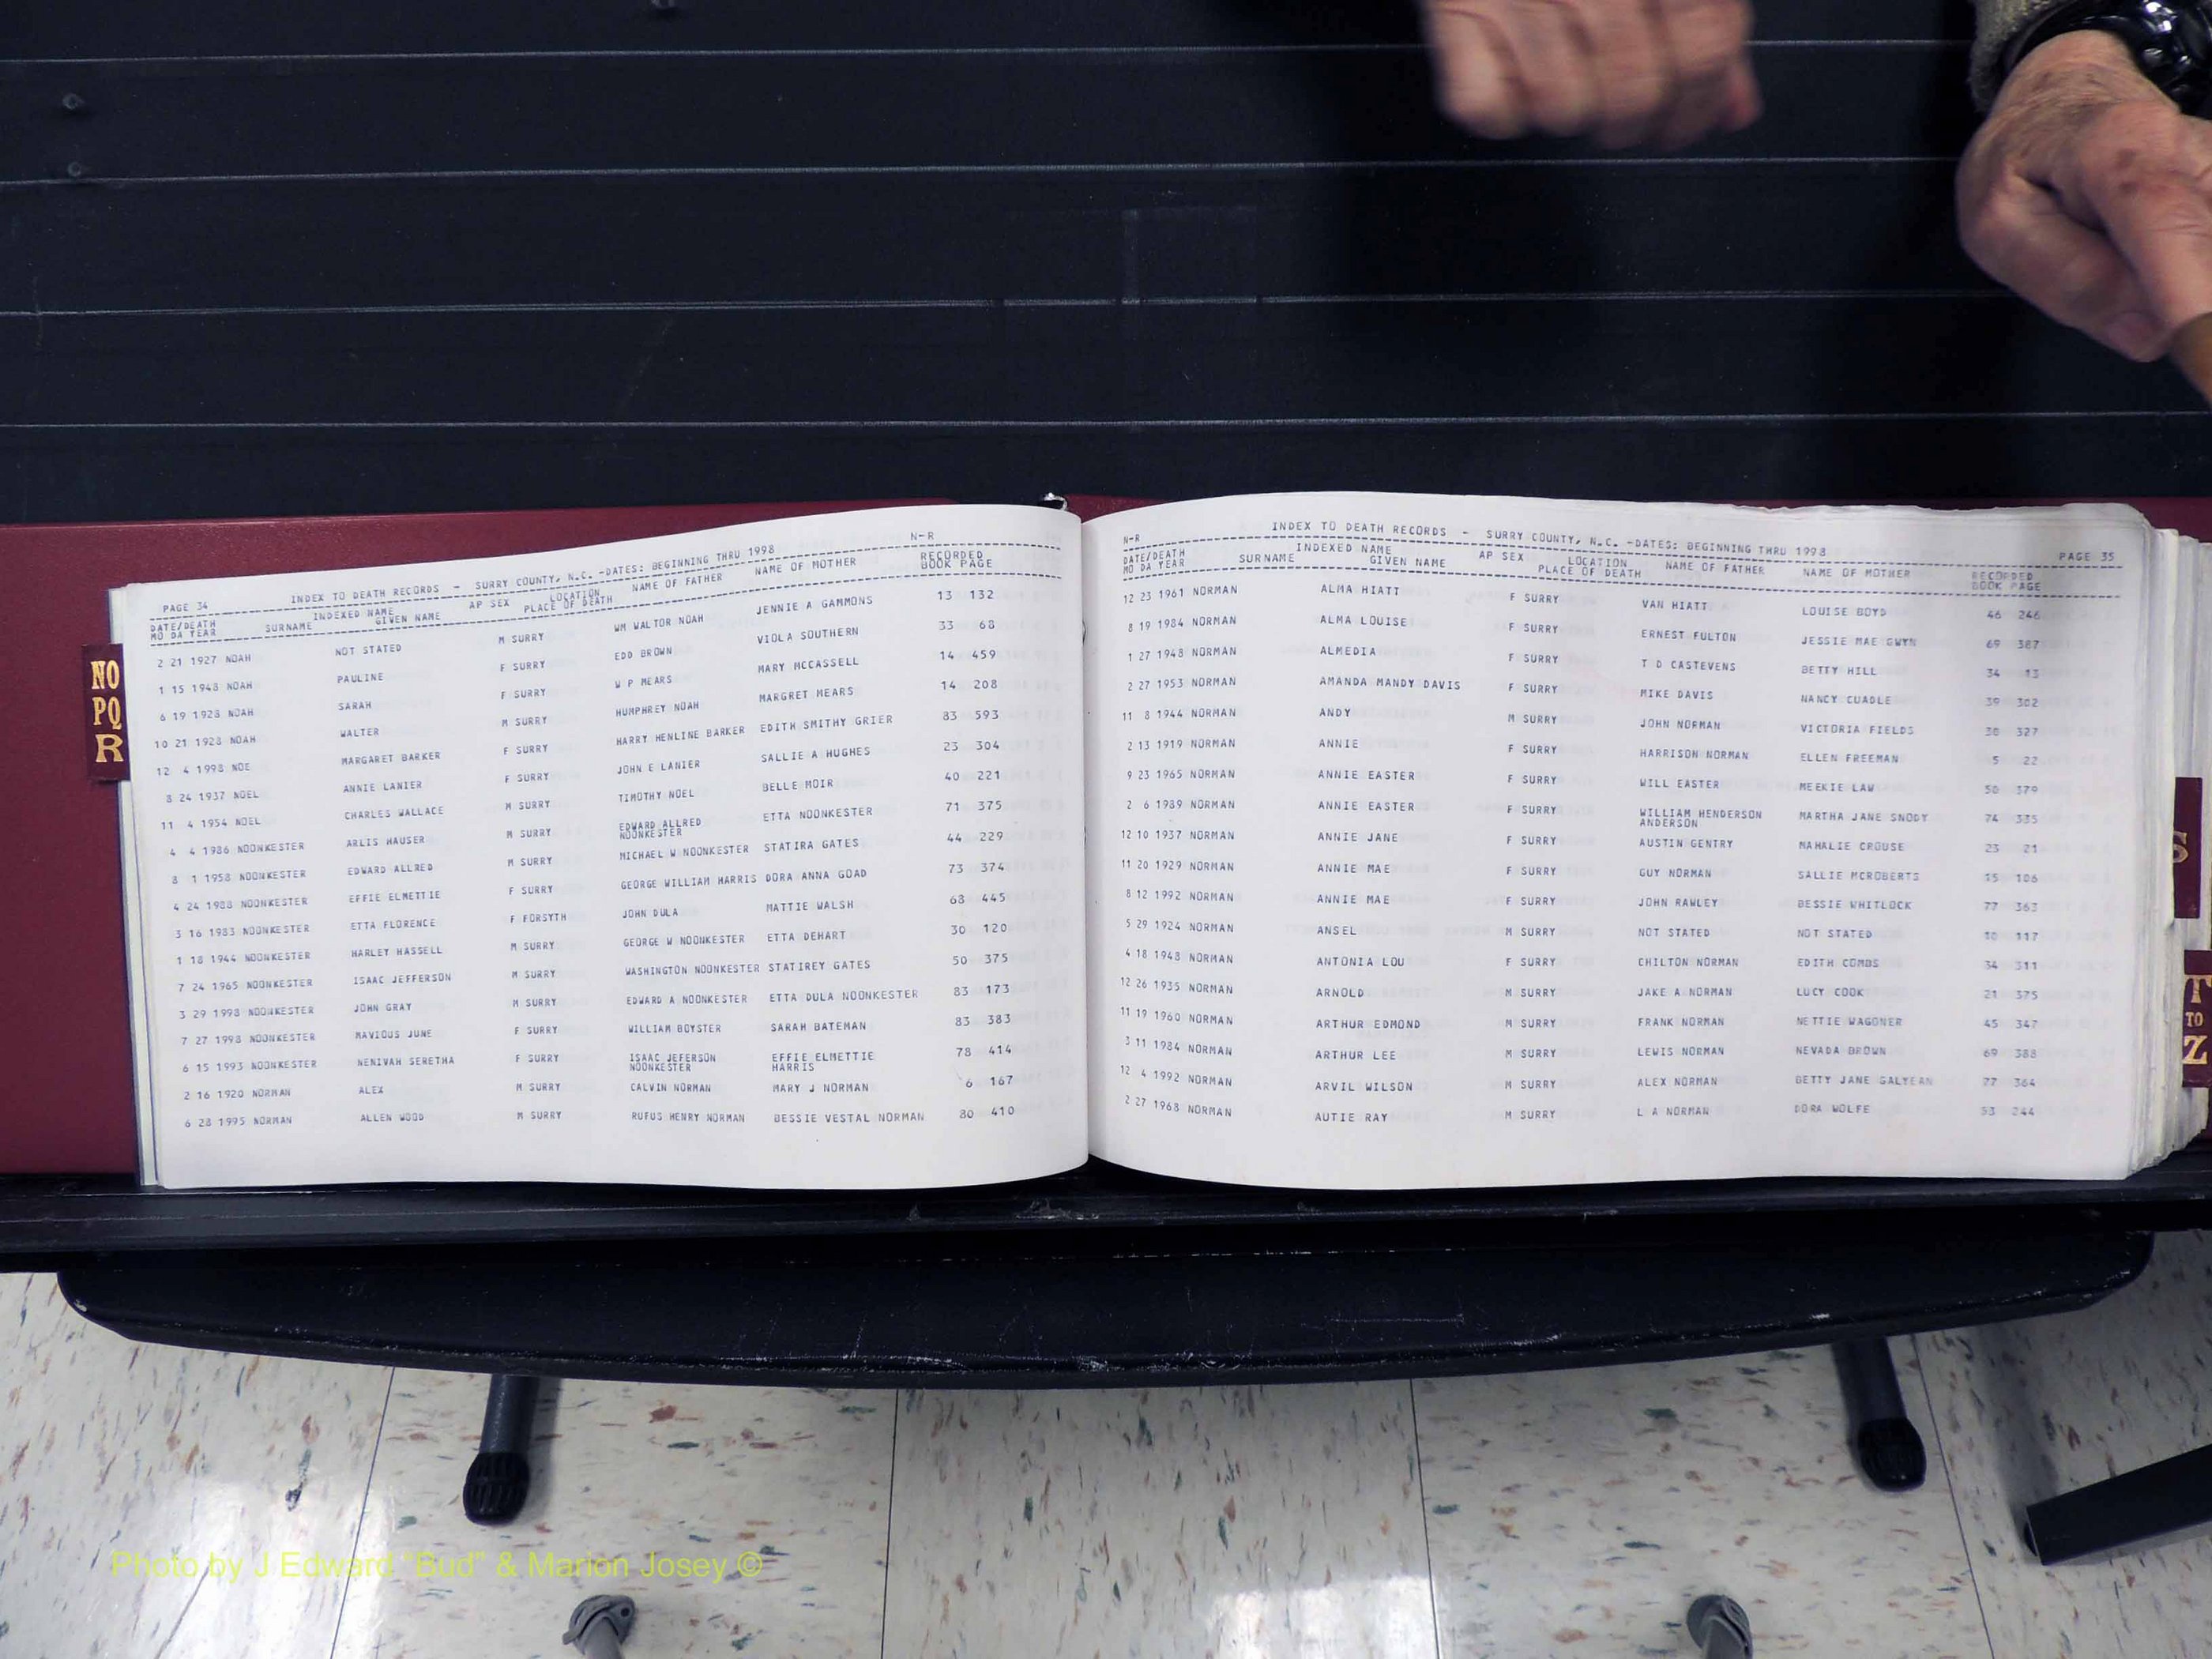 PAGE 34 INDEX TO DEATH RECORDS - SURRY COUNTY, N.C. -DATES: BEGINNING THRU 1998 N-R
DATE/DEATH INDEXED NAME LOCATION RECORDED
MO DA YEAR SURNAME GIVEN NAME AP SEX PLACE OF DEATH NAME OF FATHER NAME OF MOTHER BOOK PAGE
2 21 1927 NOAH NOT STATED M SURRY WM WALTOR NOAH JENNIE A GAMMONS 13 132
1 15 1948 NOAH PAULINE F SURRY EDD BROWN VIOLA SOUTHERN 33 68
6 19 1928 NOAH SARAH F SURRY W P MEARS MARY MCCASSELL 14 459
10 21 1928 NOAH WALTER M SURRY HUMPHREY NOAH MARGRET MEARS 14 208
12 4 1998 NOE MARGARET BARKER F SURRY HARRY HENLINE BARKER EDITH SMITHY GRIER 83 593
8 24 1937 NOEL ANNIE LANIER F SURRY JOHN E LANIER SALLIE A HUGHES 23 304
11 4 1954 NOEL CHARLES WALLACE M SURRY TIMOTHY NOEL BELLE MOIR 40 221
4 4 1986 NOONKESTER ARLIS HAUSER M SURRY EDWARD ALLRED NOONKESTER ETTA NOONKESTER 71 375
8 1 1958 NOONKESTER EDWARD ALLRED M SURRY MICHAEL W NOONKESTER STATIRA GATES 44 229
4 24 1988 NOONKESTER EFFIE ELMETTIE F SURRY GEORGE WILLIAM HARRIS DORA ANNA GOAD 73 374
3 16 1983 NOONKESTER ETTA FLORENCE F FORSYTH JOHN DULA MATTIE WALSH 68 445
1 18 1944 NOONKESTER HARLEY HASSELL M SURRY GEORGE W NOONKESTER ETTA DEHART 30 120
7 24 1965 NOONKESTER ISAAC JEFFERSON M SURRY WASHINGTON NOONKESTER STATIREY GATES 50 375
3 29 1998 NOONKESTER JOHN GRAY M SURRY EDWARD A NOONKESTER ETTA DULA NOONKESTER 83 173
7 27 1998 NOONKESTER MAVIOUS JUNE F SURRY WILLIAM BOYSTER SARAH BATEMAN 83 383
6 15 1993 NOONKESTER NENIVAH SERETHA F SURRY ISAAC JEFERSON NOONKESTER EFFIE ELMETTIE HARRIS 78 414
2 16 1920 NORMAN ALEX M SURRY CALVIN NORMAN MARY J NORMAN 6 167
6 28 1995 NORMAN ALLEN WOOD M SURRY RUFUS HENRY NORMAN BESSIE VESTAL NORMAN 80 410
N-R INDEX TO DEATH RECORDS - SURRY COUNTY, N.C. -DATES: BEGINNING THRU 1998 PAGE 35
DATE/DEATH INDEXED NAME LOCATION RECORDED
MO DA YEAR SURNAME GIVEN NAME AP SEX PLACE OF DEATH NAME OF FATHER NAME OF MOTHER BOOK PAGE
12 23 1961 NORMAN ALMA HIATT F SURRY VAN HIATT LOUISE BOYD 46 246
8 19 1984 NORMAN ALMA LOUISE F SURRY ERNEST FULTON JESSIE MAE GWYN 69 387
1 27 1948 NORMAN ALMEDIA F SURRY T D CASTEVENS BETTY HILL 34 13
2 27 1953 NORMAN AMANDA MANDY DAVIS F SURRY MIKE DAVIS NANCY CUADLE 39 302
11 8 1944 NORMAN ANDY M SURRY JOHN NORMAN VICTORIA FIELDS 30 327
2 13 1919 NORMAN ANNIE F SURRY HARRISON NORMAN ELLEN FREEMAN 5 22
9 23 1965 NORMAN ANNIE EASTER F SURRY WILL EASTER MEEKIE LAW 50 379
2 6 1989 NORMAN ANNIE EASTER F SURRY WILLIAM HENDERSON ANDERSON MARTHA JANE SNODY 74 335
12 10 1937 NORMAN ANNIE JANE F SURRY AUSTIN GENTRY MAHALIE CROUSE 23 21
11 20 1929 NORMAN ANNIE MAE F SURRY GUY NORMAN SALLIE MCROBERTS 15 106
8 12 1992 NORMAN ANNIE MAE F SURRY JOHN RAWLEY BESSIE WHITLOCK 77 363
5 29 1924 NORMAN ANSEL M SURRY NOT STATED NOT STATED 10 117
4 18 1948 NORMAN ANTONIA LOU F SURRY CHILTON NORMAN EDITH COMBS 34 311
12 26 1935 NORMAN ARNOLD M SURRY JAKE A NORMAN LUCY COOK 21 375
11 19 1960 NORMAN ARTHUR EDMOND M SURRY FRANK NORMAN NETTIE WAGONER 45 347
3 11 1984 NORMAN ARTHUR LEE M SURRY LEWIS NORMAN NEVADA BROWN 69 388
12 4 1992 NORMAN ARVIL WILSON M SURRY ALEX NORMAN BETTY JANE GALYEAN 77 364
2 27 1968 NORMAN AUTIE RAY M SURRY L A NORMAN DORA WOLFE 53 244
NO
PQ
R
S
T
TO
Z
Photo by J Edward "Bud" & Marion Josey ©